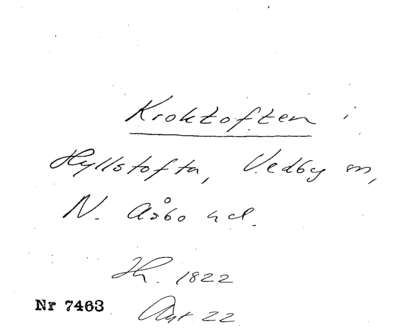 Kroktoften i
Hyllstofta, Vedby sn,
N. Åsbo hd.
Hh. 1822
Akt 22
Nr 7463